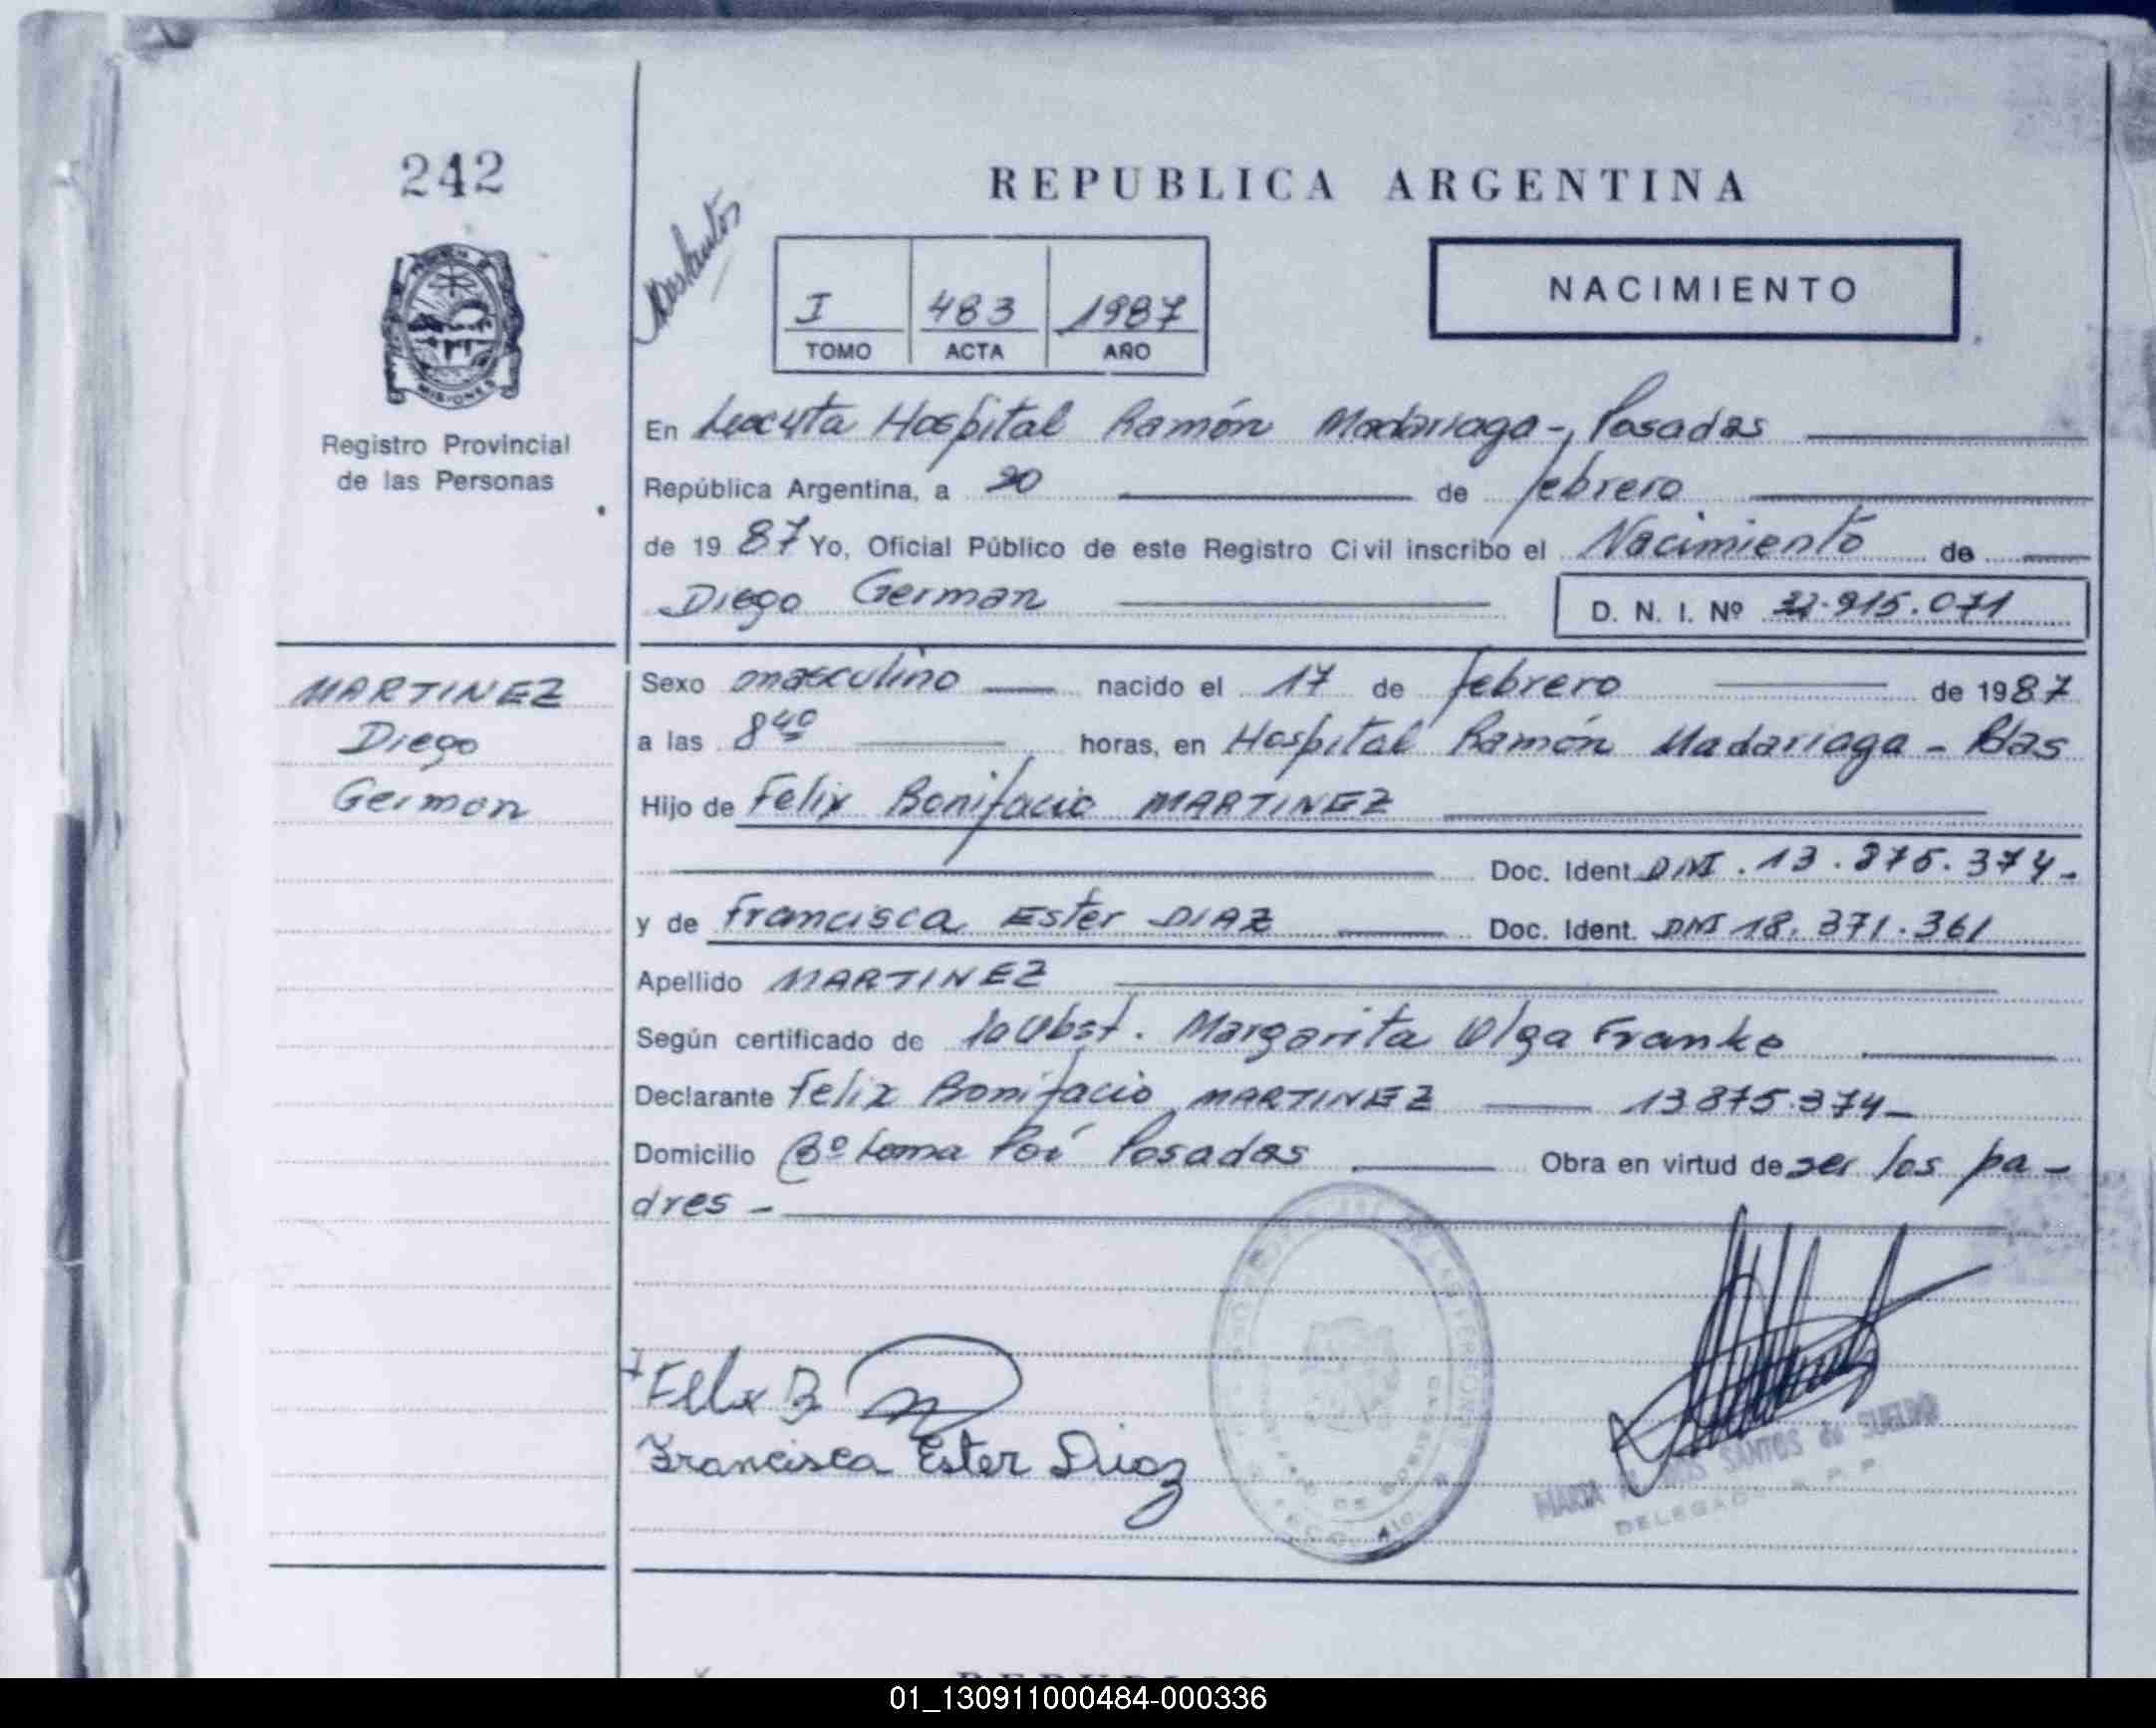 242
REPUBLICA ARGENTINA
I 483 1987
TOMO ACTA AÑO
NACIMIENTO
MISIONES
Registro Provincial
de las Personas
En Hospital Ramón Madariaga -, Posadas
República Argentina, a 20 de febrero
de 1987 Yo, Oficial Público de este Registro Civil inscribo el Nacimiento de
Diego German D. N. I. Nº 32.915.071
MARTINEZ
Diego
German
Sexo masculino nacido el 17 de febrero de 1987
a las 8 40 horas, en Hospital Ramón Madariaga - Pdas
Hijo de Felix Bonifacio MARTINEZ
Doc. Ident. DNI. 13.875.374-
y de Francisca Ester DIAZ Doc. Ident. DNI 18.371.361
Apellido MARTINEZ
Según certificado de la Obst. Margarita Olga Franke
Declarante Felix Bonifacio MARTINEZ 13.875.374-
Domicilio Bº Loma Poí Posadas Obra en virtud de ser los pa-
dres -
Felix B
Francisca Ester Diaz
SANTOS de SUELDO
01_130911000484-000336